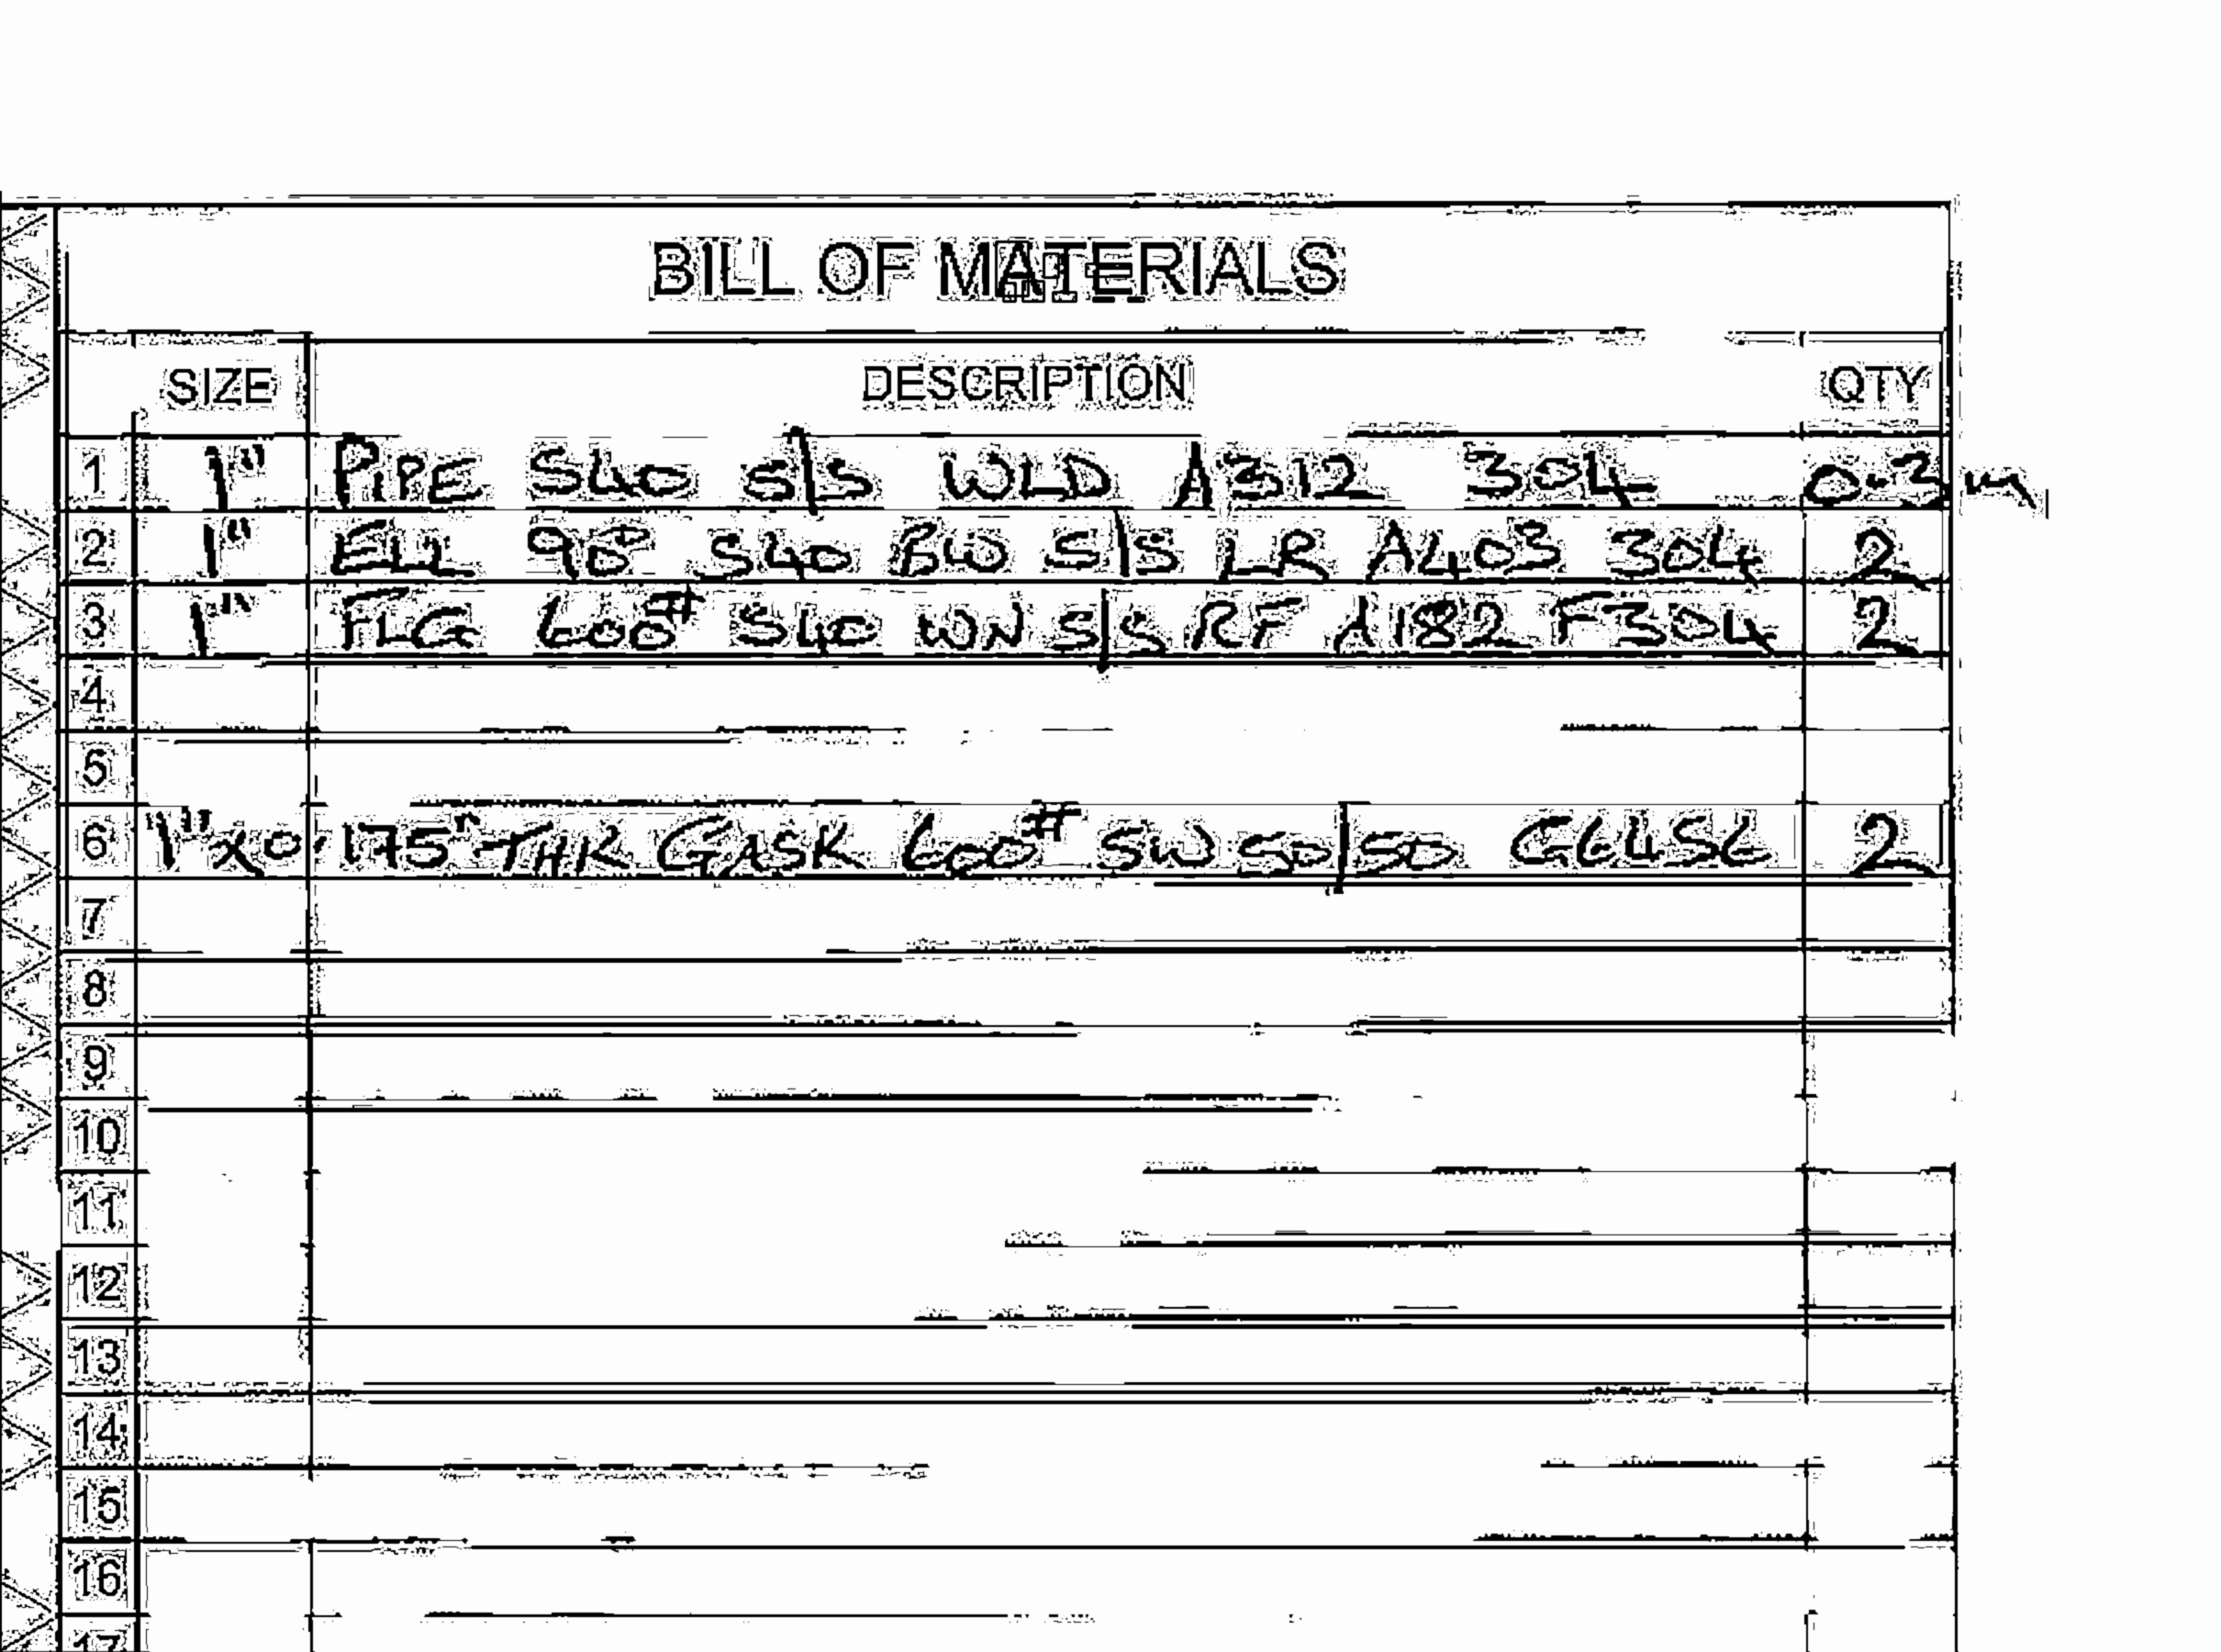 BILL OF MATERIALS
SIZE DESCRIPTION QTY
1 1" PIPE S40 S/S WLD A312 304 0.3m
2 1" ELL 90° S40 BW S/S LR A403 304 2
3 1" FLG 600# S40 WN S/S RF A182 F304 2
4
5
6 1"x0.175" THK GASK 600# SW 50/50 G6456 2
7
8
9
10
11
12
13
14
15
16
17